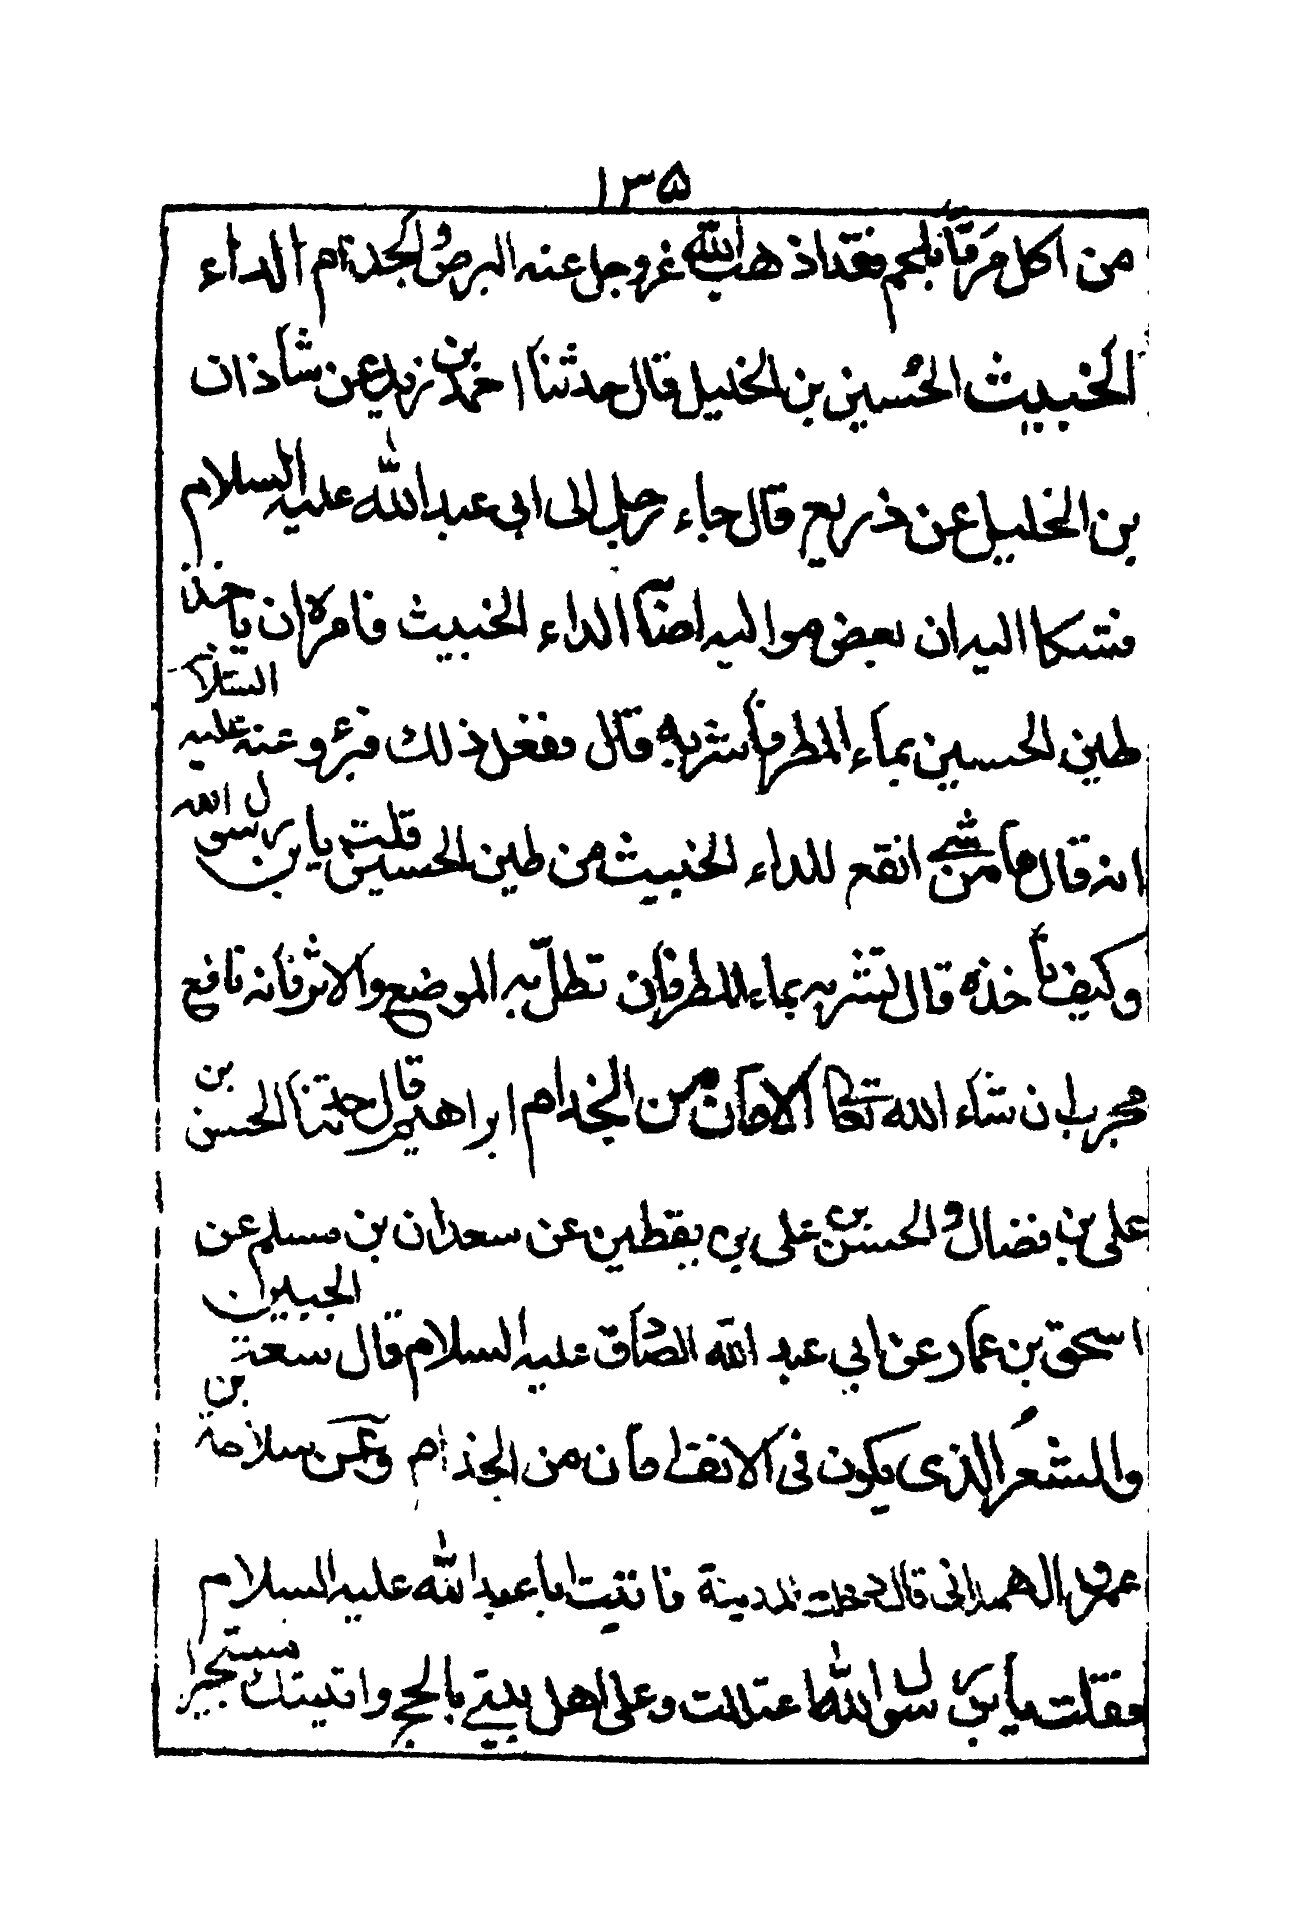 ١٣۵
من اكل مرقا بلحم فقد اذهب الله عز وجل عنه البرص والجذام الداء
الخبيث الحسين بن الخليل قال حدثنا احمد بن زيد عن شاذان
بن الخليل عن ذريع قال جاء رجل الى ابى عبد الله عليه السلام
فشكا اليه ان بعض مواليه اصابه الداء الخبيث فامره ان ياخذ
طين الحسين بماء المطر فاشربه قال ففعل ذلك فبرئ وعنه عليه السلام
انه قال ما من شئ انفع للداء الخبيث من طين الحسين قلت يا بن رسول الله
وكيف ناخذه قال تشربه بماء المطر فان تطلى به الموضع والاثر فانه نافع
مجرب ان شاء الله تعالى الامان من الجذام ابراهيم قال حدثنا الحسن بن
على بن فضال والحسن بن على بن يقطين عن سعدان بن مسلم عن
اسحق بن عمار عن ابى عبد الله الصادق عليه السلام قال سعة الجبين
والشعر الذى يكون فى الانف امان من الجذام وعن سلامة بن
عمرو الهمدانى قال دخلت المدينة فاتيت ابا عبد الله عليه السلام
فقلت يابن رسول الله اعتللت وعلى اهل بيتى بالحج واتيتك مستجيرا